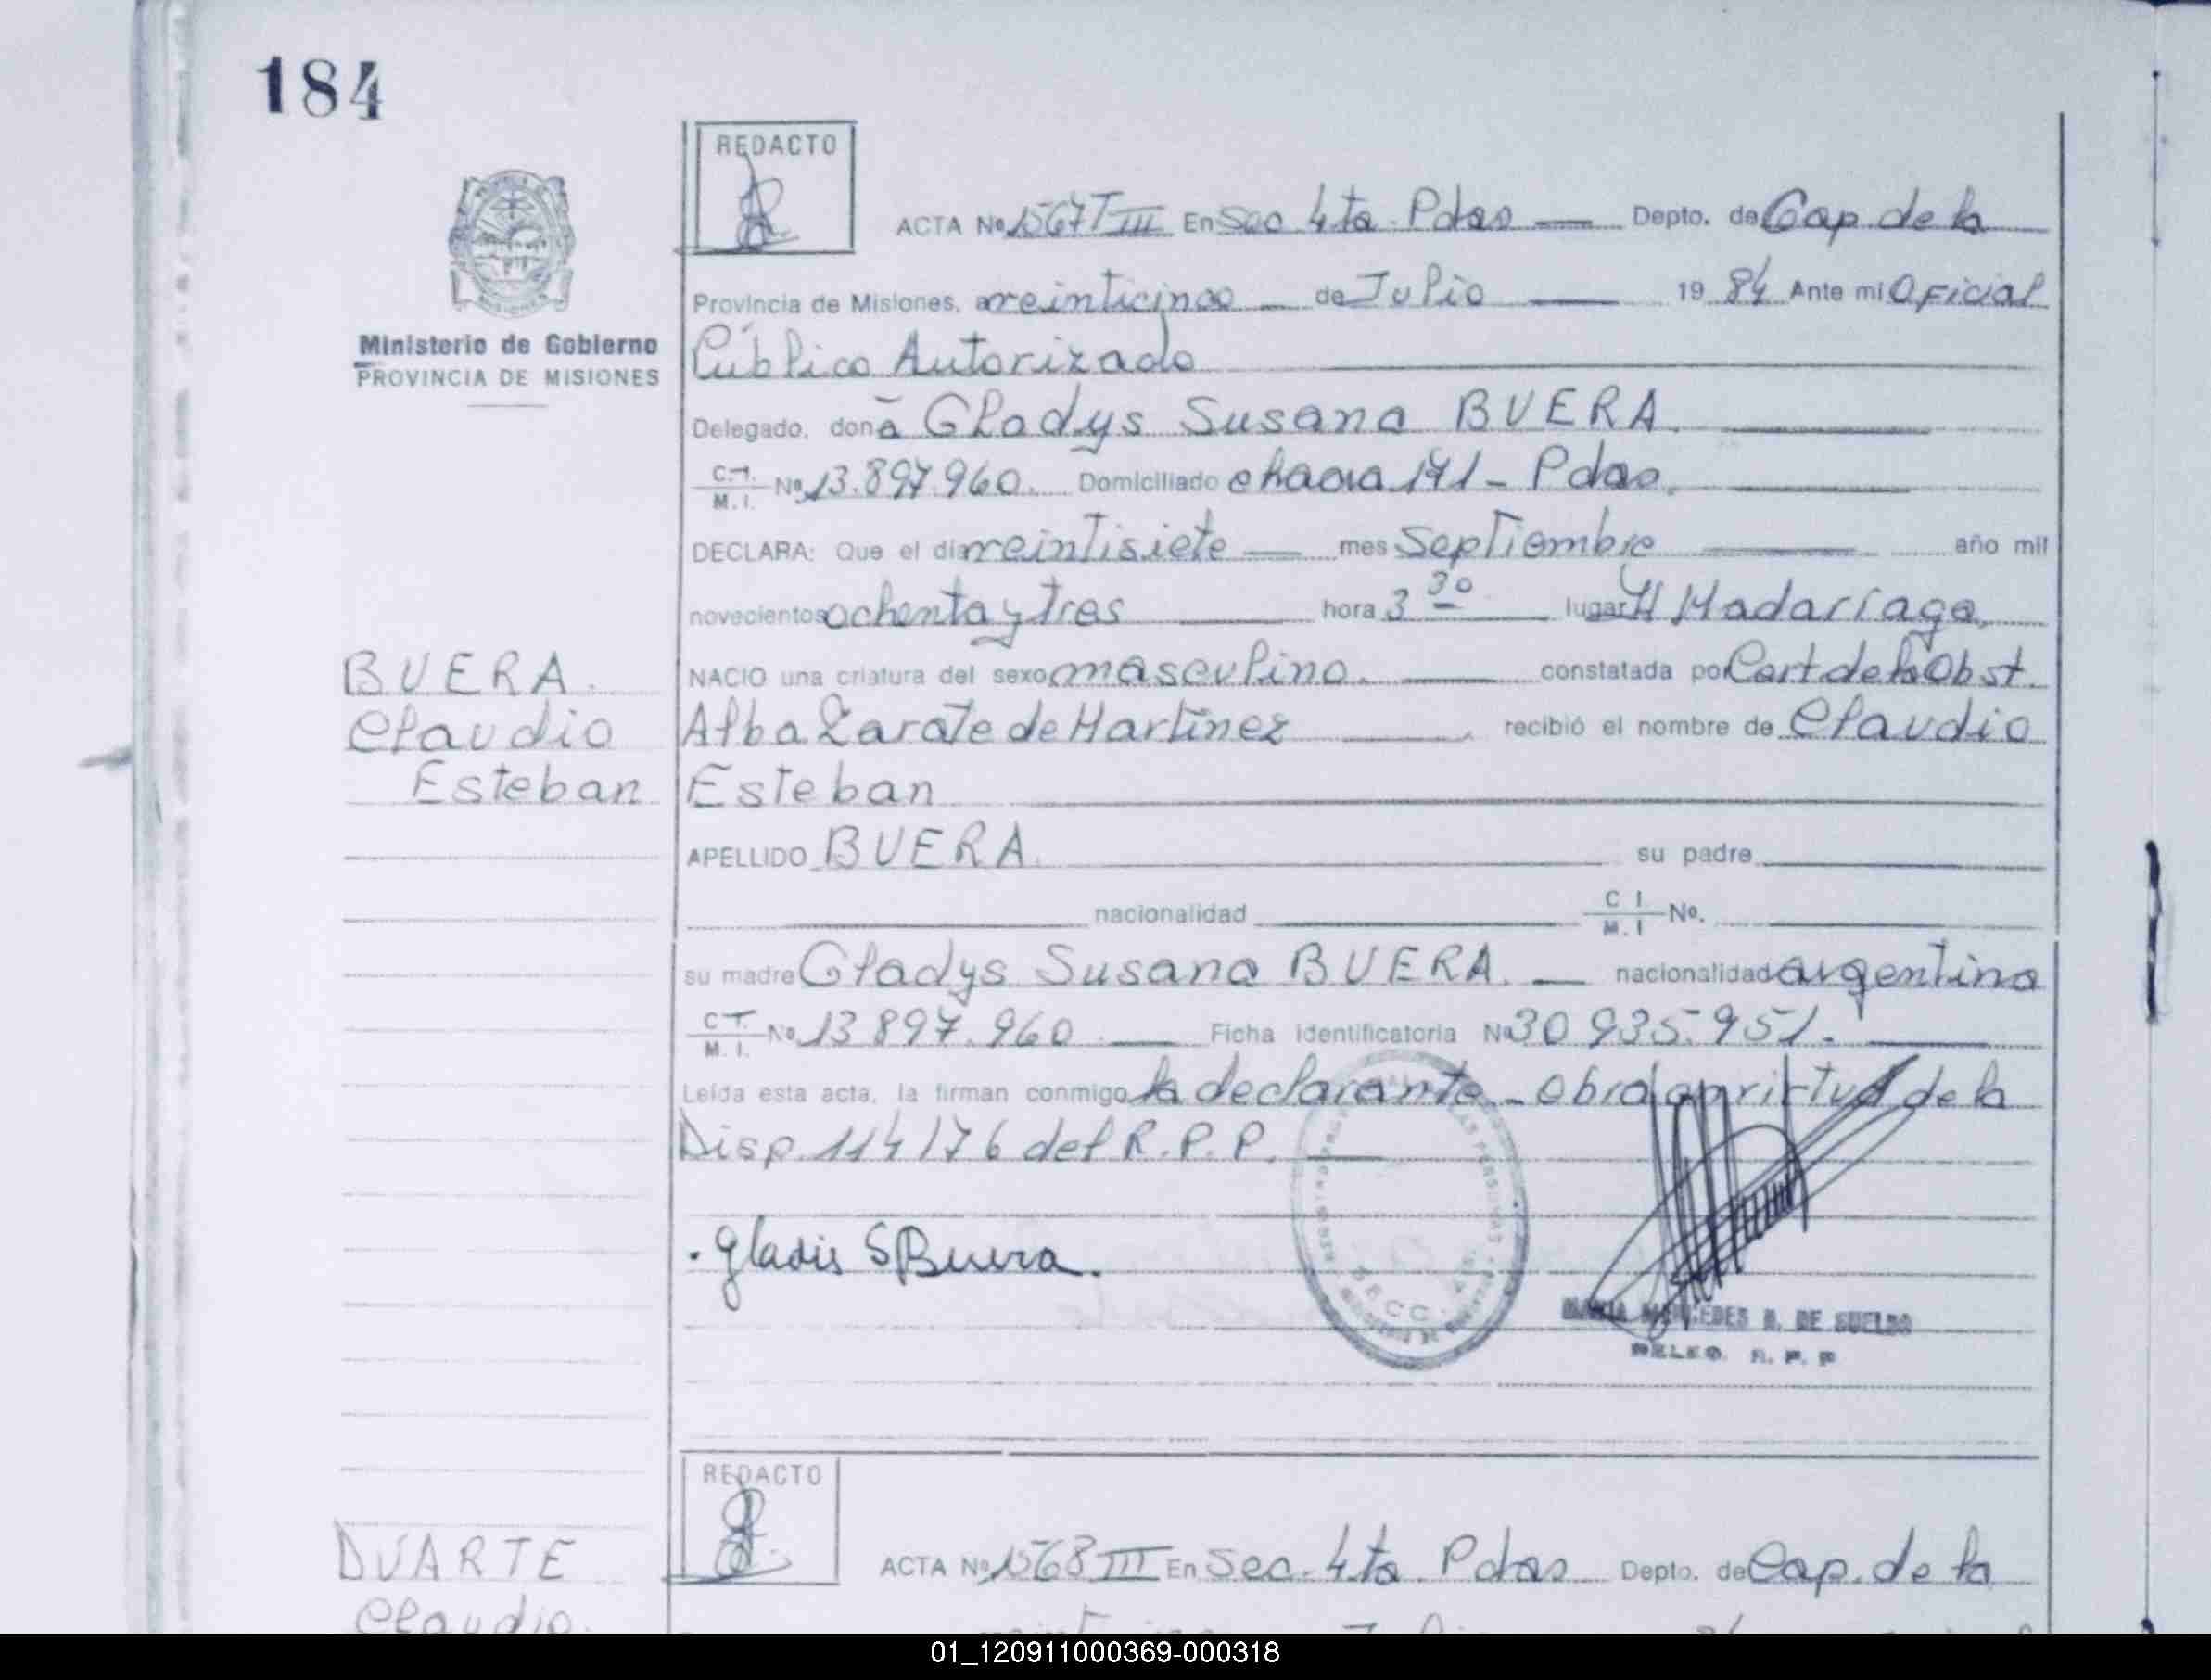 184
REDACTO
ACTA Nº 1567 T III En Sec 4ta. Pdas Depto. de Cap. de la
Ministerio de Gobierno
PROVINCIA DE MISIONES
Provincia de Misiones, a veinticinco de Julio 19 84 Ante mi Oficial
Público Autorizado
Delegado, doña Gladys Susana BUERA.
C.I. M.I. Nº 13.897.960. Domiciliado chacra 191 - Pdas.
DECLARA: Que el dia veintisiete mes Septiembre año mil
novecientos ochenta y tres hora 3 30 lugar H Madariaga.
NACIO una criatura del sexo masculino. constatada por Cert de la Obst.
Alba Zarate de Martinez recibió el nombre de Claudio
Esteban
BUERA.
Claudio
Esteban
APELLIDO BUERA su padre
nacionalidad C I M. I No.
su madre Gladys Susana BUERA. nacionalidad argentina
C I. M. I. Nº 13 897.960 Ficha identificatoria Nº 30 935.951.
Leída esta acta, la firman conmigo la declarante - Obra en virtud de la
Disp. 114/76 del R.P.P.
Gladis S Buera.
SECC. 4
MARIA MERCEDES B. DE SUELDO
DELEG. R. P. P
REDACTO
DUARTE
Claudio
ACTA Nº 1568 III En Sec. 4ta Pdas Depto. de Cap. de la
01_120911000369-000318